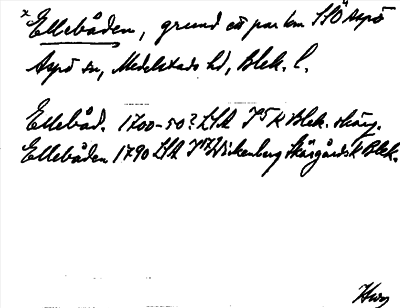 x Ellebåden, grund ett par km SSÖ Aspö
Aspö sn, Medelstads hd, Blek. l.
Ellebåd. 1700-50? LSA K Blek. skärg.
Ellebåden 1790 LSA Wirkenberg Skärgårdsk Blek.